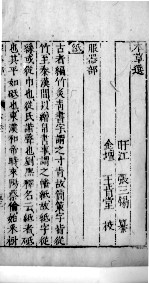 本草選
旴江 張三錫 纂
金壇 王肯堂 校
服器部
紙
古者編竹炙青書字謂之汗青故簡策字皆從
竹至秦漢間以繒帛書事謂之幡紙故紙字從
糸或從巾也從氏諧聲也劉熙釋名云紙者砥
也其平如砥也東漢和帝時耒陽蔡倫始采樹